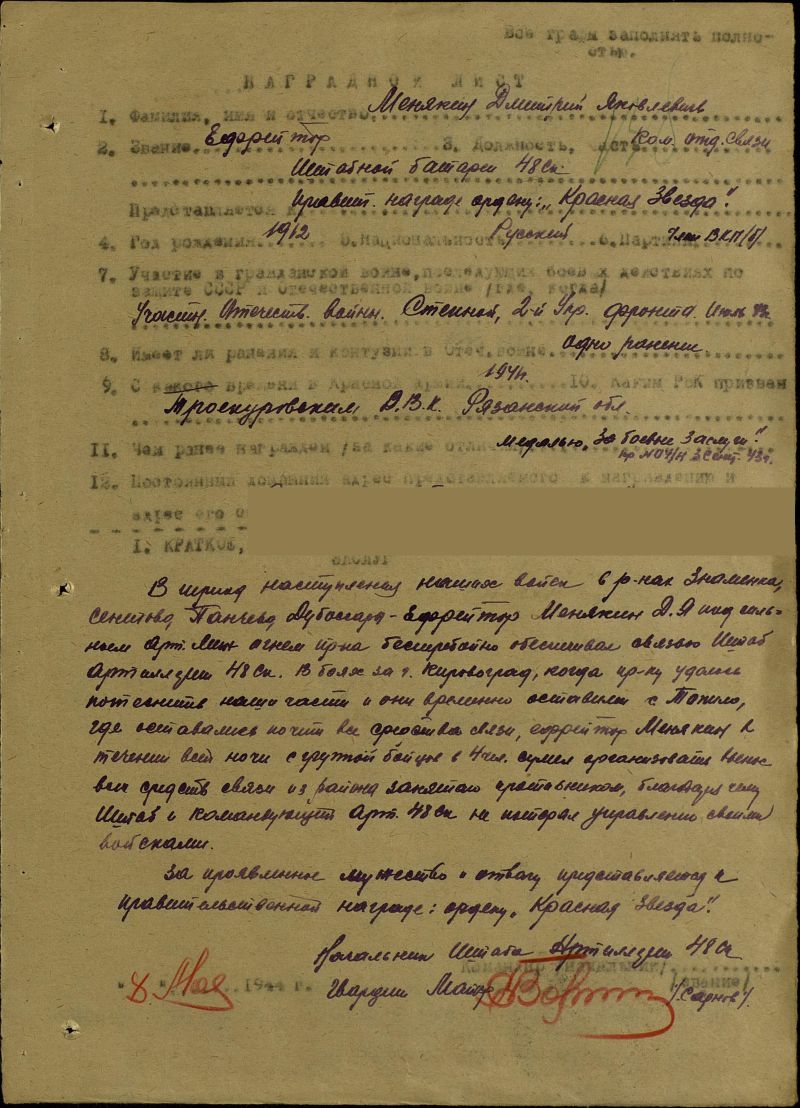 Все графы заполнять полно-
стью.
НАГРАДНОЙ ЛИСТ
1. Фамилия, имя и отчество Менякин Дмитрий Яковлевич
2. Звание Ефрейтор 3. Должность, часть Ком. отд. связи
Штабной батареи 48 Ск.
Представляется к правит. награде ордену: „Красная Звезда".
4. Год рождения 1912 5. Национальность Русский 6. Партийн. Член ВКП/б/
7. Участие в гражданской войне, последующих боевых действиях по
защите СССР и Отечественной войне /где, когда/
Участн. Отечеств. войны. Степной, 2-й Укр. фронта. Июль 43г.
8. Имеет ли ранения и контузии в Отеч. войне. одно ранение
9. С какого времени в Красной армии 1941г. 10. Каким РВК призван
Проскуровским О.В.К. Рязанской обл.
11. Чем ранее награжден /за какие отлич Медалью „За боевые заслуги".
Пр №04/н 3 Сент. 43г.
12. Постоянный домашний адрес представляемого к награждению и
адрес его с
I. КРАТКОЕ,
ЗАСЛУГ
В период наступления наших войск в р-нах Знаменка,
Панчево Дубоссары - Ефрейтор Менякин Д.Я под силь-
ным Арт. Мин огнем пр-ка бесперебойно обеспечивал связью Штаб
Артиллерии 48 Ск. В боях за г. Кировоград, когда пр-ку удалось
потеснить наши части и они временно оставили с.
где оставались почти все средства связи, ефрейтор Менякин в
течении всей ночи с группой бойцов в 4 чел. сумел организовать вынос
всех средств связи из района занятого противником, благодаря чему
Штаб и Командующий Арт. 48 Ск не потерял управление своими
войсками.
За проявленное мужество и отвагу представляется к
правительственной награде: ордену „Красная Звезда".
Начальник Штаба Артиллерии 48 Ск
Командир /начальник/
Гвардии Майор /Сарнов/.
/звание/
„8" Мая 1944 г.